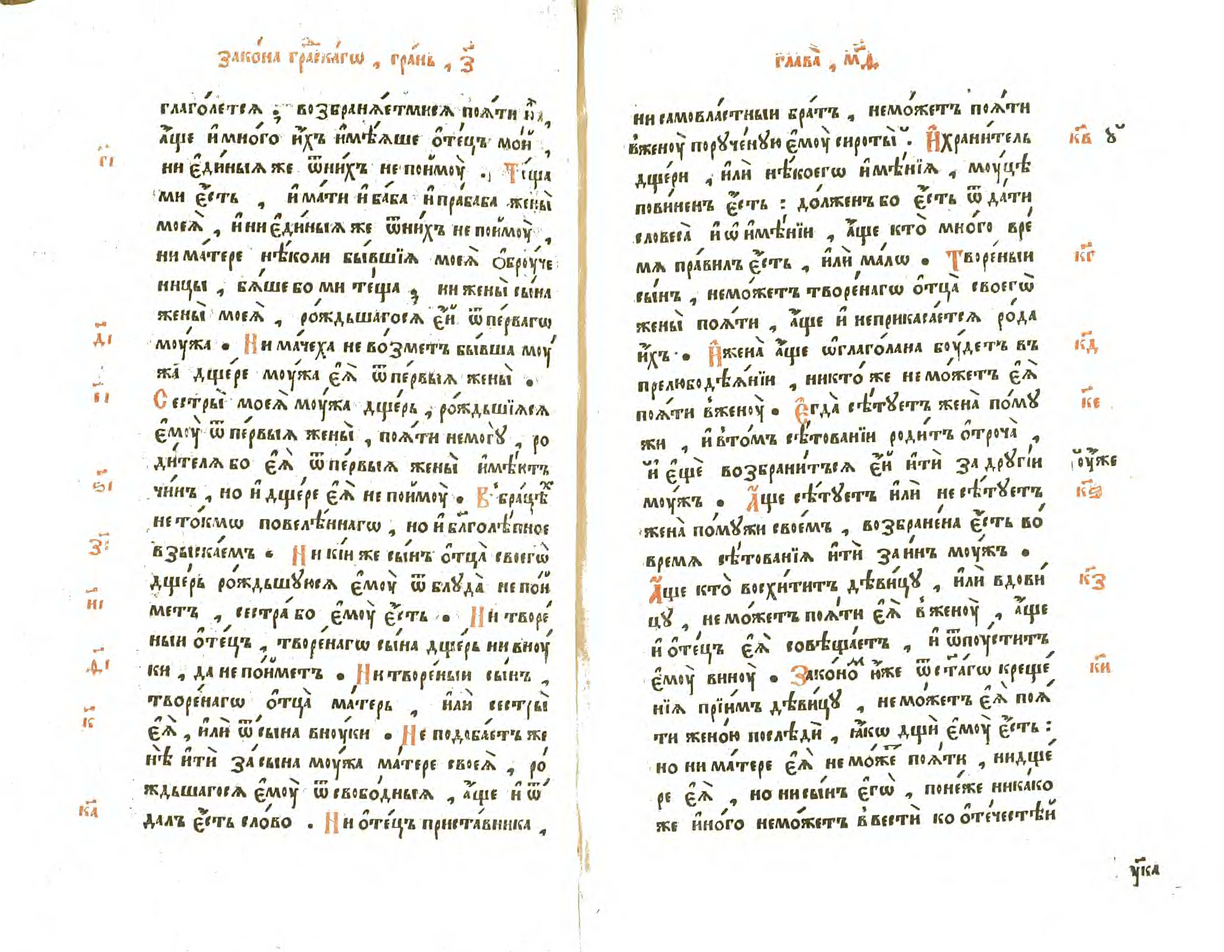 зако́на гра́дскагѡ , гра́нь , з҃
глаго́летсѧ ; возбранѧ́етмисѧ поѧ́ти ѝ̀хъ,
а҆́ще и҆мно́го и҆́хъ и҆мѣ́ѧше ѻ҆те́цъ мо́й ,
г҃і
ни є҆ди́ныѧ же ѿни́хъ не поймоу̀ . Те́ща
ми є҆́сть , и҆ ма́ти и҆ ба́ба и҆ праба́ба жены̀
моеѧ̀ , и҆ ни є҆ди́ныѧ же ѿни́хъ не поймоу̀ ,
ни ма́тере нѣ́коли бы́вшїѧ моеѧ̀ ѻ҆броу́че
ницы , бѧ́ше бо ми те́ща ; ни жены̀ сы́на
жены̀ моеѧ̀ , ро́ждьшагосѧ є҆́й ѿ пе́рвагѡ
д҃і
моу́жа . Ни ма́чеха не во́зметъ бы́вша моу́
жа̀ дще́ре моу́жа є҆ѧ̀ ѿ пе́рвыѧ жены̀ .
є҃і
Сестры̀ моеѧ̀ моу́жа дще́рь , ро́ждьшїѧсѧ
є҆моу̀ ѿ пе́рвыѧ жены̀ , поѧ́ти немогу̀ , ро
ди́телѧ бо є҆ѧ̀ ѿ пе́рвыѧ жены̀ и҆мѣ́етъ
ѕ҃і
чи́нъ , но и҆ дще́ре є҆ѧ̀ не поймоу̀ . В бра́цѣх
не то́кмѡ повелѣ́ннагѡ , но и҆ бл҃голѣ́пное
з҃і
взыска́емъ . Ни кі́и же сы́нъ ѻ҆тца̀ своегѡ̀
дще́рь ро́ждьшуюсѧ є҆моу̀ ѿ блу́да̀ не по́й
и҃і
метъ , сестра́ бо є҆моу̀ є҆́сть . Ни творе́
ныи ѻ҆те́цъ , творе́нагѡ сы́на дще́рь ни вноу́
ѳ҃і
ки , да не по́йметъ . Ни творе́ныи сы́нъ ,
творе́нагѡ ѻ҆тца̀ ма́терь , и҆лѝ сестры̀
к҃
є҆ѧ̀ , и҆лѝ ѿ сы́на вноу́ки . Не подоба́етъ же
нѣ̀ и҆тѝ за сы́на моу́жа ма́тере своеѧ̀ , ро́
ждьшагосѧ є҆моу̀ ѿ свобо́дныѧ , а҆́ще и҆ ѿ
к҃а
да́лъ є҆́сть сло́во . Ни ѻ҆те́цъ приста́вника ,
глава̀ , м҃д,
ни самовла́стныи бра́тъ , немо́жетъ поѧ́ти
вженоу̀ пору́ченую є҆моу̀ сироты̀ . И҆хра́нитель
к҃в
дще́ри , и҆лѝ нѣ́коегѡ и҆мѣ́нїѧ , моуцѣ̀
пови́ненъ є҆́сть : до́лженъ бо є҆́сть ѿда́ти
словеса̀ и҆ ѡ҆ и҆мѣ́нїи , а҆́ще кто̀ мно́го вре́
мѧ пра́вилъ є҆́сть , и҆лѝ ма́лѡ . Творе́ныи
к҃г
сы́нъ , немо́жетъ творе́нагѡ ѻ҆тца̀ своегѡ̀
жены̀ поѧ́ти , а҆́ще и҆ неприкаса́етсѧ ро́да
и҆́хъ . И҆жена̀ а҆́ще ѡ҆глаго́лана боу́детъ въ
к҃д
прелюбодѣѧ́нїи , никто́ же не мо́жетъ є҆ѧ̀
поѧ́ти вженоу̀ . Е҆гда̀ сѣ́туетъ жена̀ по му́
к҃е
жи , и҆ вто́мъ сѣ́тованїи роди́тъ ѻ҆троча̀ ,
и҆ є҆щѐ возбрани́тъсѧ є҆́й и҆тѝ за дру́гїи
оу҆́же
моу́жъ . А҆́ще сѣ́туетъ и҆лѝ не сѣ́туетъ
к҃ѕ
жена̀ по му́жи свое́мъ , возбране́на є҆́сть во́
вре́мѧ сѣ́тованїѧ и҆тѝ за и҆́нъ моу́жъ .
А҆́ще кто̀ восхи́титъ дѣви́цу , и҆лѝ вдови́
к҃з
цу , не мо́жетъ поѧ́ти є҆ѧ̀ вженоу̀ , а҆́ще
и҆ ѻ҆те́цъ є҆ѧ̀ совѣща́етъ , и҆ ѿпоу́ститъ
є҆моу̀ виноу̀ . Зако́ном и҆́же ѿ ст҃а́гѡ креще́
к҃и
нїѧ прїи́мъ дѣви́цу , не мо́жетъ є҆ѧ̀ поѧ́
ти жено́ю послѣдѝ , ꙗ҆́кѡ дщѝ є҆моу̀ є҆́сть :
но ни ма́тере є҆ѧ̀ не мо́же поѧ́ти , ни дще́
ре є҆ѧ̀ , но ни сы́нъ є҆гѡ̀ , поне́же ника́ко
же и҆но́го немо́жетъ ввестѝ ко ѻ҆те́честѣй
у҃ка